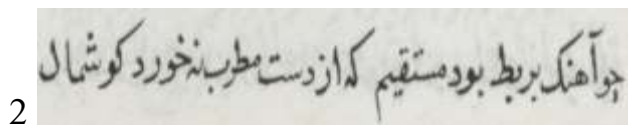 چو آهنک بربط بود مستقیم که از دست مطرب نه خورد کوشمال
2